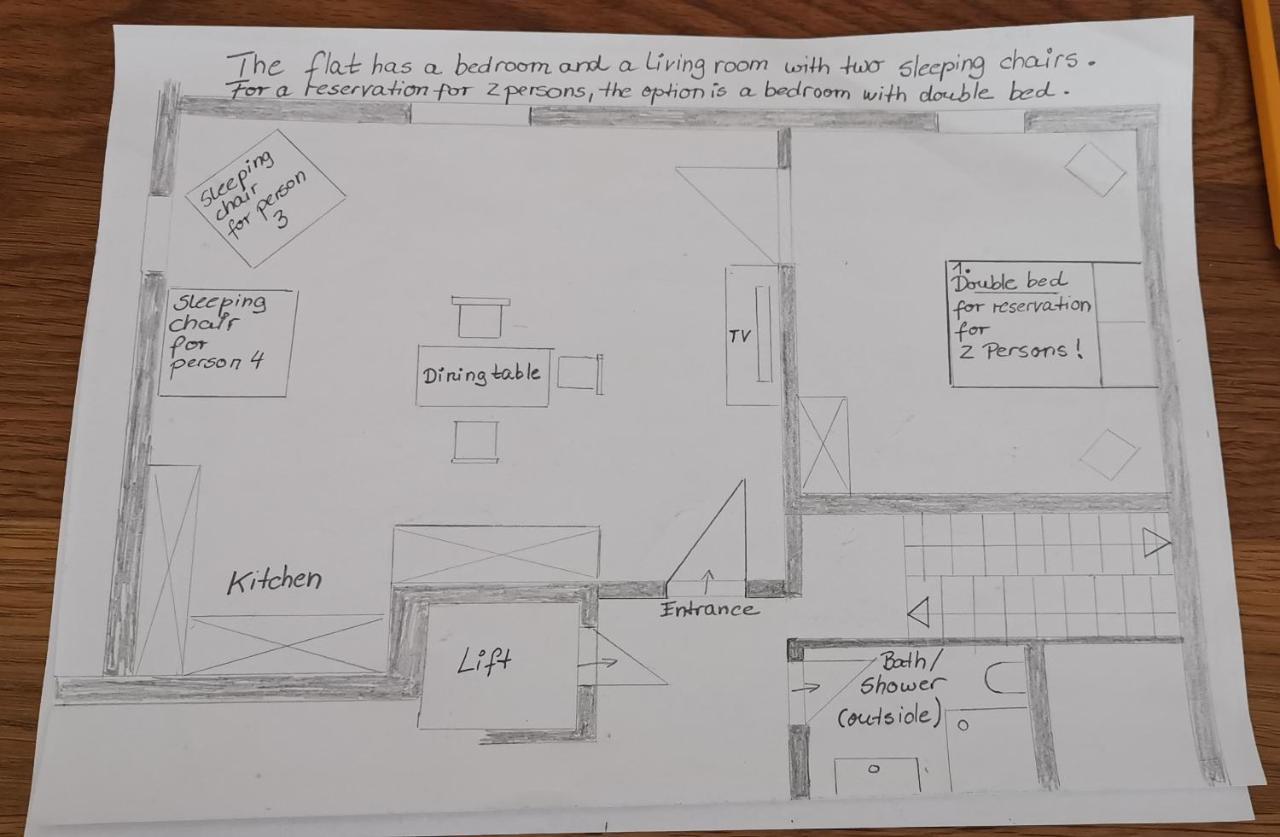 The flat has a bedroom and a living room with two sleeping chairs.
For a reservation for 2 persons, the option is a bedroom with double bed.
Sleeping
chair
for person
3
Sleeping
chair
for
person 4
Dining table
TV
1.
Double bed
for reservation
for
2 Persons!
Kitchen
Lift
Entrance
Bath/
Shower
(outside)